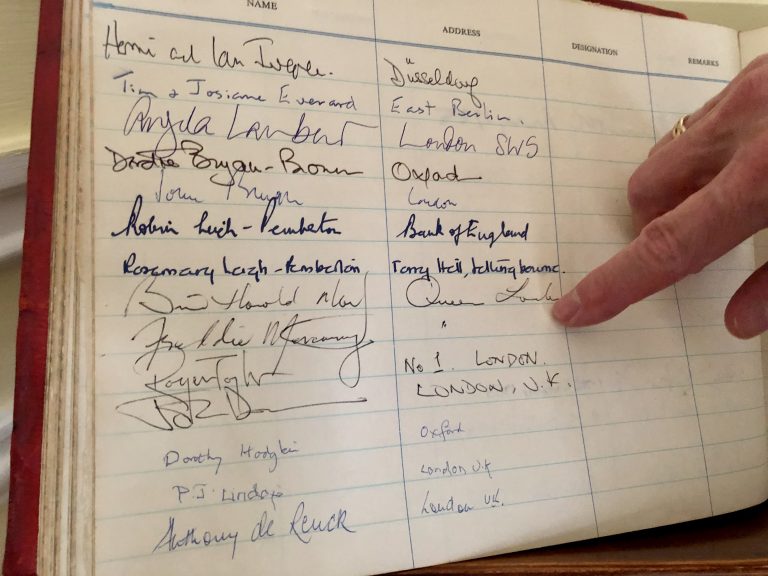 NAME ADDRESS DESIGNATION REMARKS
Henri and Ian Düsseldorf
Tim & Josiane Everard East Berlin.
Angela Lambert London SW5
Bryan-Brown Oxford
John Bryan London
Robin Leigh-Pemberton Bank of England
Rosemary Leigh-Pemberton Torry Hill, Sittingbourne.
Brian Harold May Queen London
Freddie Mercury "
Roger Taylor No 1. LONDON.
LONDON, U.K.
Dorothy Hodgkin Oxford
P.J. London UK
Anthony de Reuck London UK.